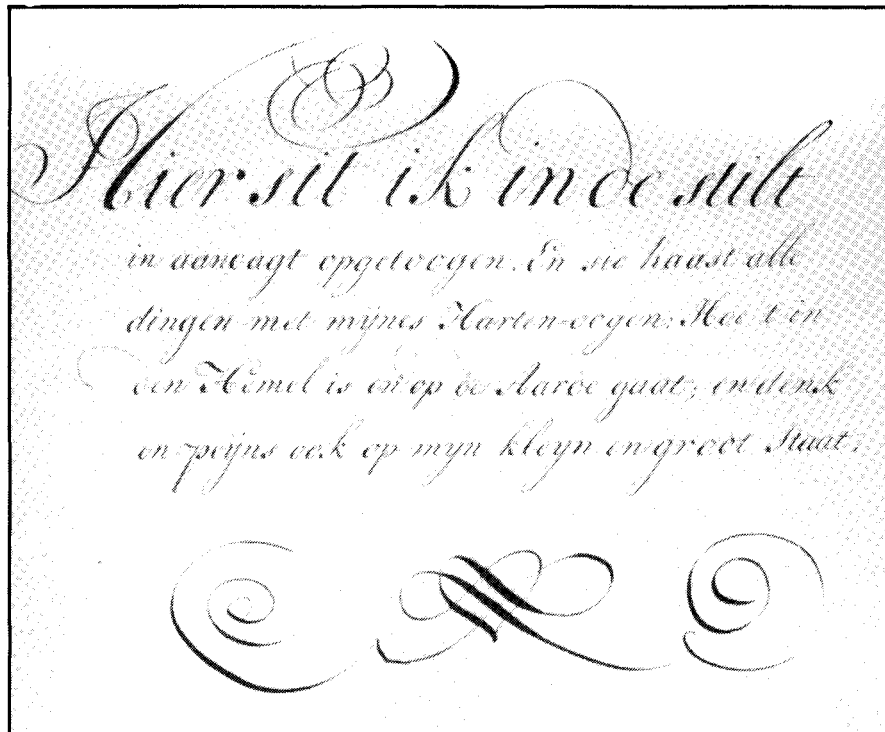 Hier sit ik in de stilt
in aandagt opgetoogen. En sie haast alle
dingen met mijnes Harten-oogen: Hoe t in
den Hemel is en op de Aarde gaat; en denk
en peijns ook op myn kleyn en groot Staat.